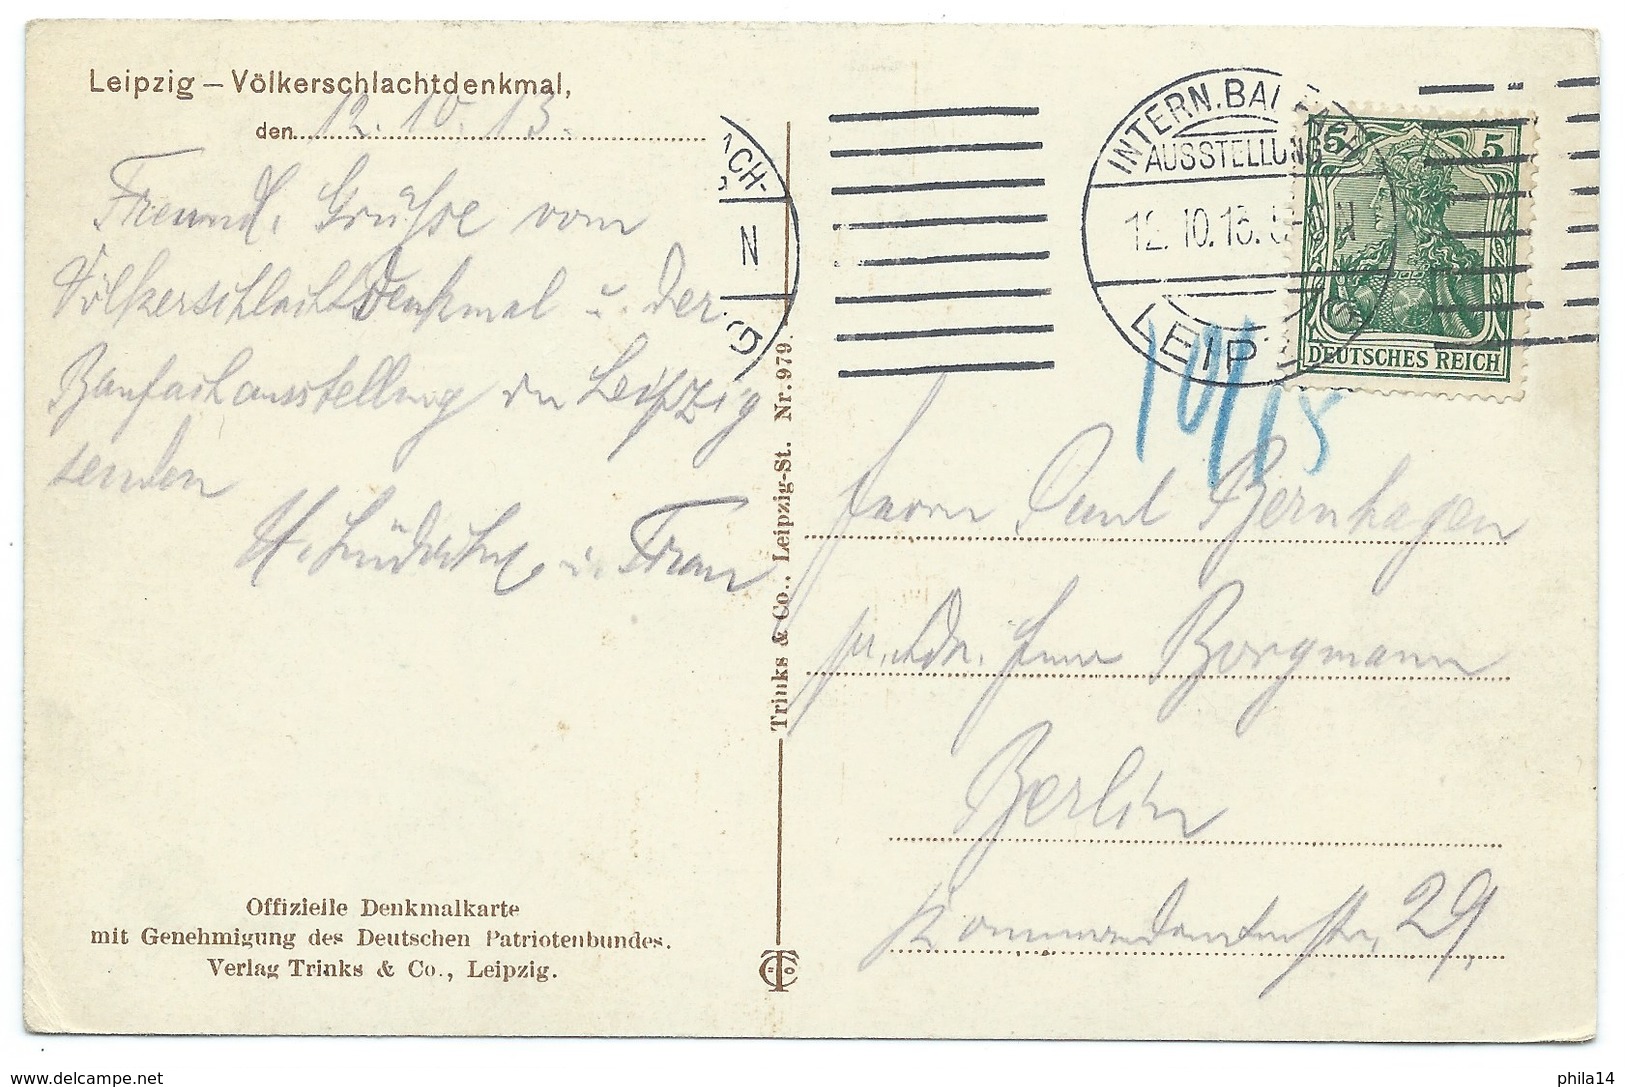 Leipzig – Völkerschlachtdenkmal,
den 12. 10. 13.
Freundl. Grüsse vom
Völkerschlachtdenkmal u. der
Baufachausstellung in Leipzig
senden
u. Frau
Offizielle Denkmalkarte
mit Genehmigung des Deutschen Patriotenbundes.
Verlag Trinks & Co., Leipzig.
Trinks & Co., Leipzig-St. Nr. 979.
ACH-
N
G
INTERN. BAUFACH
AUSSTELLUNG
12. 10. 13.
LEIP
5 5
DEUTSCHES REICH
Herrn Paul Bernhagen
Borgmann
Berlin
Kommandantenstr. 29,
www.delcampe.net
phila14